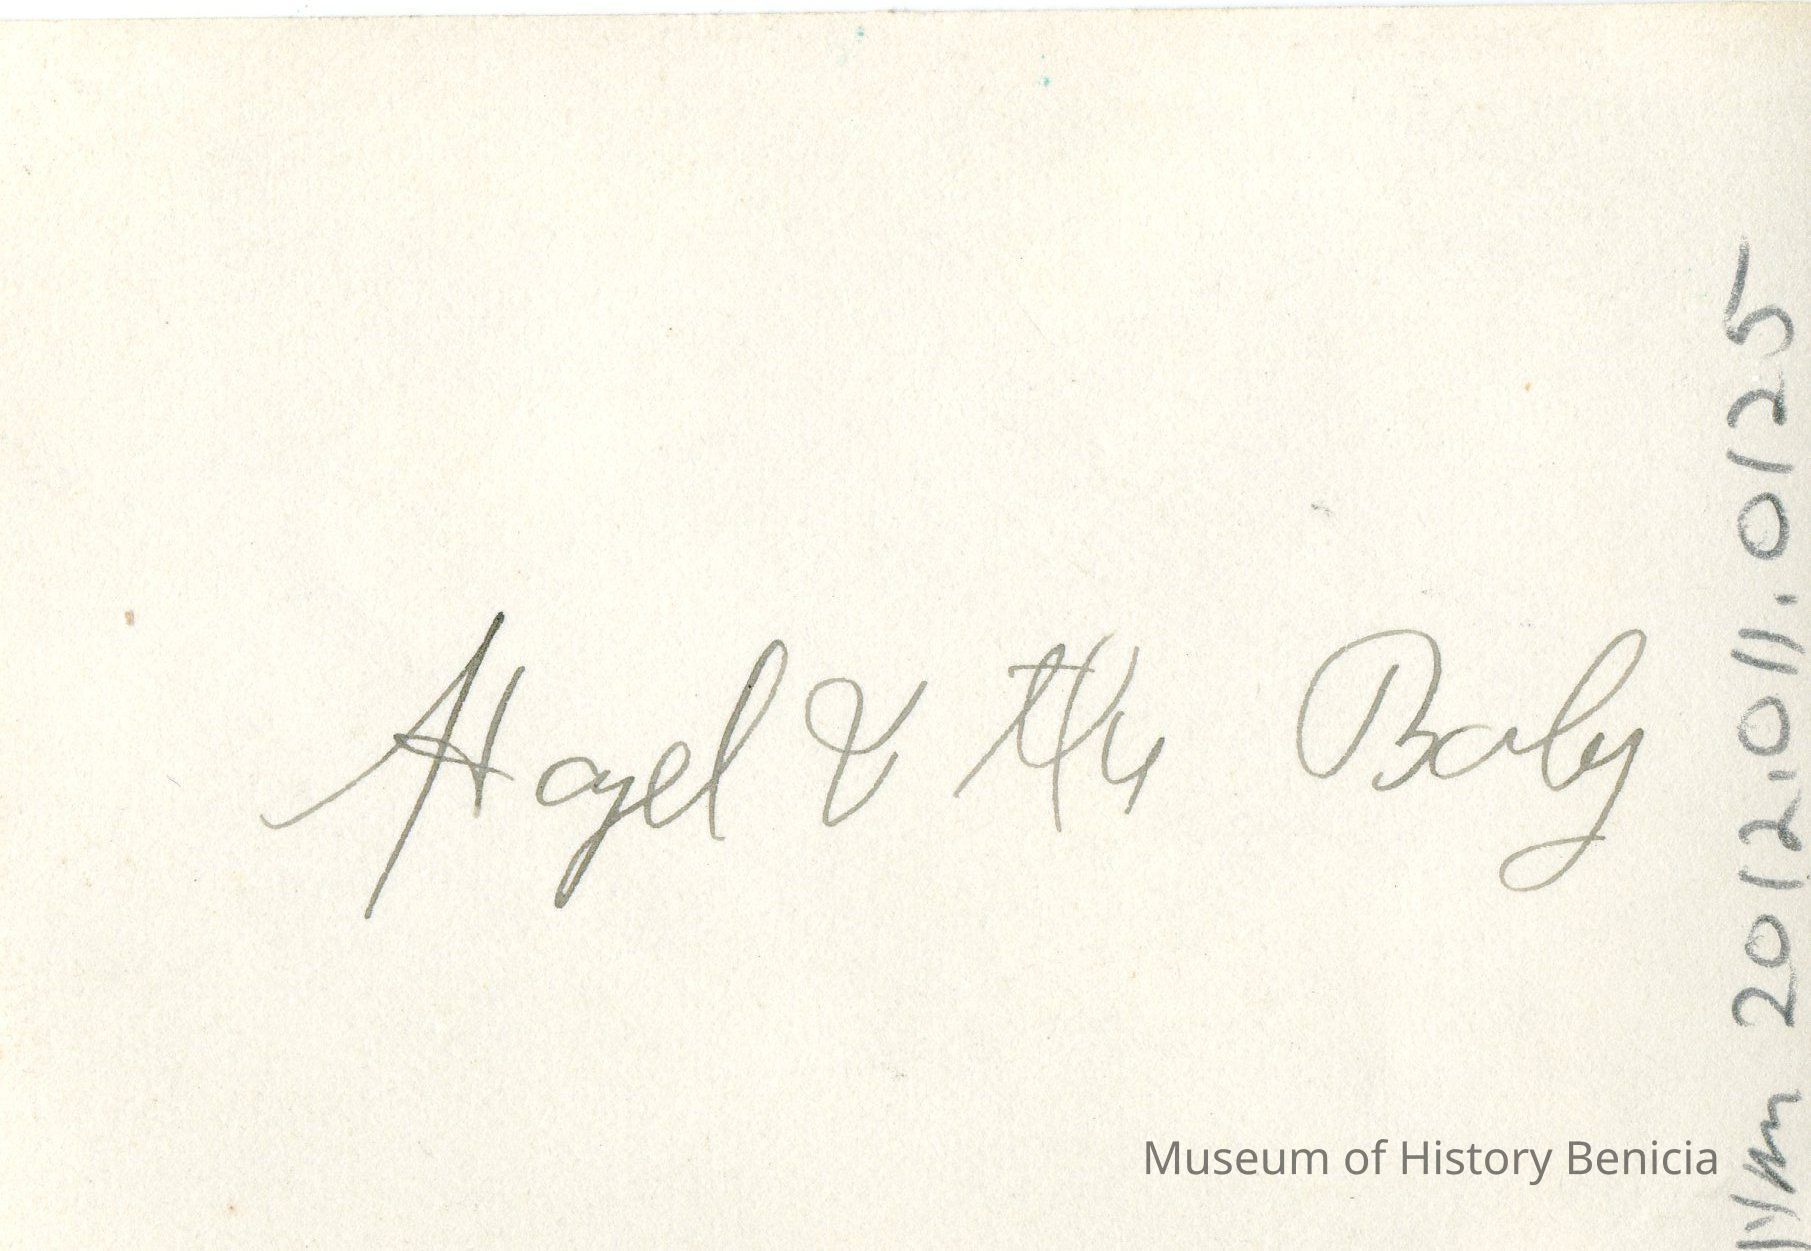 Hazel & the Baby
2012.011.0125
Museum of History Benicia